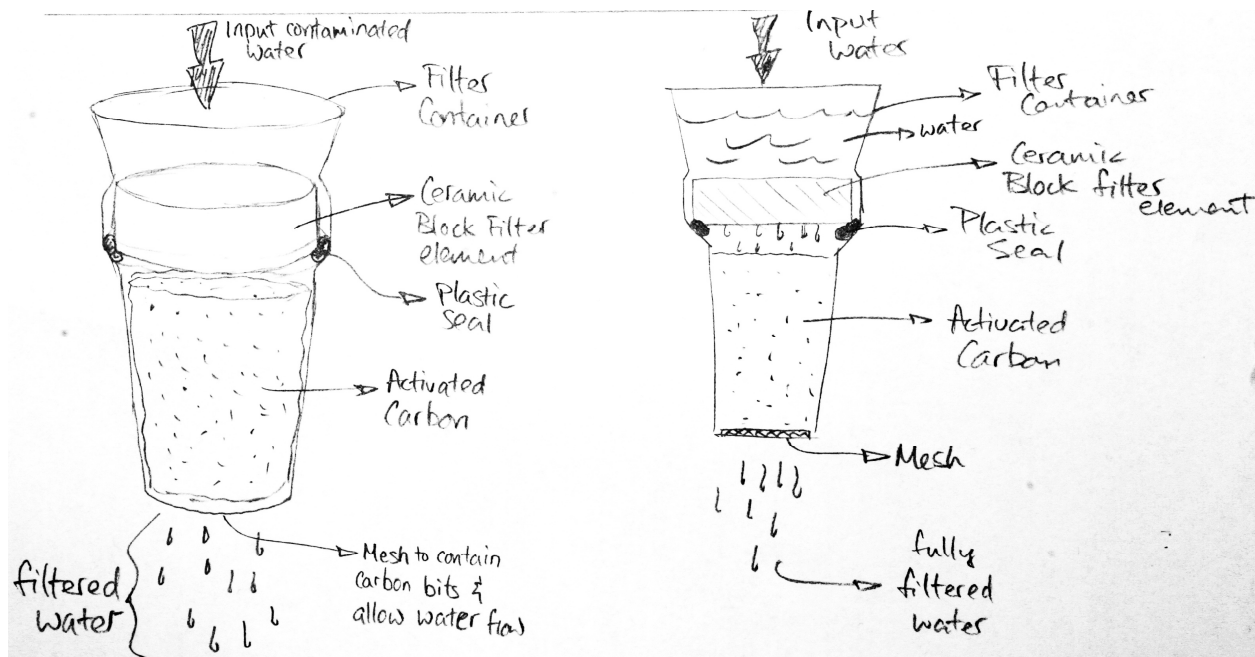 Input contaminated
water
Filter
Container
Ceramic
Block Filter
element
Plastic
seal
Activated
Carbon
Mesh to contain
carbon bits &
allow water flow
filtered
water
Input
water
Filter
Container
water
Ceramic
Block filter
element
Plastic
Seal
Activated
Carbon
Mesh
fully
filtered
water